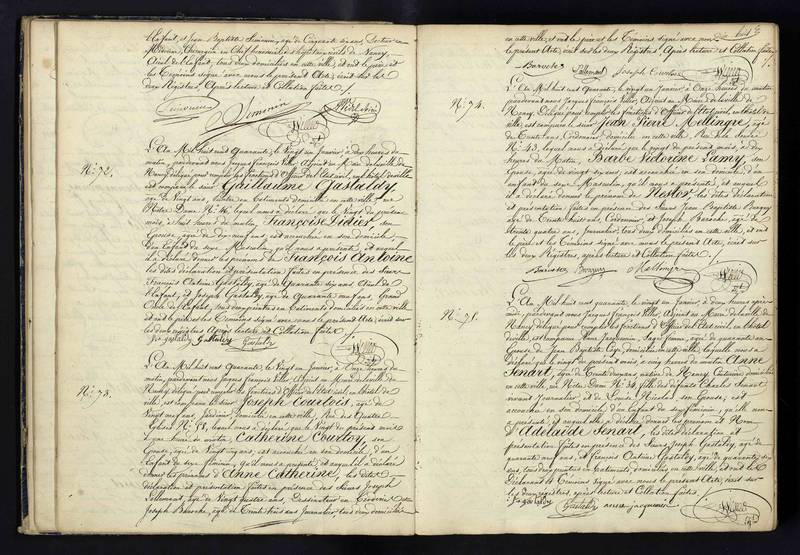 l'Enfant, et Jean Baptiste Simonin, âgé de Cinquante six ans, Docteur en
Médecine, Chirurgien en Chef honoraire hôpitaux civils de Nancy,
Aïeul de l'Enfant, tous deux domiciliés en cette ville, et ont le père et
les Témoins signé avec nous le présent Acte, écrit sur les
deux Registres, Après lecture et Collation faites.
Simonin
N° 72.
L'An Mil huit cent Quarante, le Vingt un Janvier, à dix heures du
matin, pardevant nous Jacques François Villers, Adjoint au Maire de la ville de
Nancy, délégué pour remplir les fonctions d'Officier de l'état civil, en l'hôtel de ville
est comparu le sieur Guillaume Gastaldy,
âgé de Vingt ans, Peintre en bâtiments, domicilié en cette ville, rue
Notre Dame N° 40, lequel nous a déclaré que le Vingt du présent
mois, à huit heures du matin, Françoise Didier,
Epouse, âgée de dix neuf ans, est accouchée en son domicile
d'un Enfant du sexe Masculin, qu'il nous a présenté, et auquel
il a déclaré donner les prénoms de François Antoine
les dites déclaration et présentation faites en présence des Sieurs
François Antoine Gastaldy, âgé de Quarante six ans, Aïeul de
l'Enfant, et Joseph Gastaldy, âgé de Quarante neuf ans, Grand
Oncle de l'Enfant, tous deux peintres en bâtiments domiciliés en cette ville
et ont le père et les Témoins signé avec nous le présent Acte, écrit sur
les deux registres Après lecture et Collation faites.
gastaldy Gastaldy Gastaldy
N° 73.
L'An Mil huit cent Quarante, le Vingt un Janvier, à Onze heures du
matin, pardevant nous Jacques François Villers, Adjoint au Maire de la ville de
Nancy, délégué pour remplir les fonctions d'Officier de l'état civil, en l'hôtel de
ville, est comparu le sieur Joseph Courtois, âgé de
Vingt neuf ans, Jardinier, domicilié en cette ville, Rue des Quatre
Eglises N° 58, lequel nous a déclaré que le Vingt du présent mois
à une heure du matin, Catherine Courtoy, son
Epouse, âgée de Vingt cinq ans, est accouchée en son domicile, d'un
Enfant du sexe féminin, qu'il nous a présenté, et auquel il a déclaré
donner les prénoms de Anne Catherine, les dites
déclaration et présentation faites en présence des Sieurs Joseph
Lallemant, âgé de Vingt quatre ans, Dessinateur en broderie et
Joseph Baroche, âgé de Trente trois ans, Journalier, tous deux domiciliés
en cette ville, et ont le père et les Témoins signé avec nous
le présent Acte, écrit sur les deux Registres Après lecture et Collation faites.
Baroche Lallemant Joseph Courtois
N° 74.
L'An Mil huit cent Quarante, le vingt un Janvier à Onze heures du matin,
pardevant nous Jacques François Villers, Adjoint au Maire de la ville de
Nancy, délégué pour remplir les fonctions d'Officier de l'état civil, en l'hôtel de
ville, est comparu le sieur Jean Pierre Mellingre, âgé
de Trente ans, Cordonnier, domicilié en cette ville, Rue
N° 43, lequel nous a déclaré que le vingt du présent mois, à dix
heures du Matin, Barbe Victorine Lamy, son
Epouse, âgée de vingt six ans, est accouchée en son domicile, d'un
enfant du sexe Masculin, qu'il nous a présenté, et auquel
il a déclaré donner le prénom de Nicolas, les dites déclaration
et présentation faites en présence des Sieurs Jean Baptiste Burgey
âgé de Trente huit ans, Cordonnier, et Joseph Baroche, âgé de
Trente quatre ans, Journalier, tous deux domiciliés en cette ville, et ont
le père et les Témoins signé avec nous le présent Acte, écrit sur
les deux Registres, après lecture et Collation faites.
Mellingre
N° 75.
L'An Mil huit cent quarante, le vingt un Janvier, à deux heures après
midi, pardevant nous Jacques François Villers, Adjoint au Maire de la ville de
Nancy, délégué pour remplir les fonctions d'Officier de l'état civil, en l'hôtel
de ville, est comparue Anne Jacquemin, Sage femme, âgée de quarante
Epouse de Jean Baptiste domiciliée en cette ville, laquelle nous a
déclaré que le vingt du présent mois, à cinq heures du matin, Anne
Senart, âgée de Trente deux ans, native de Nancy, Couturière, domiciliée
en cette ville, rue Notre Dame N° 38, fille des défunts Charles Senart
vivant Journalier, et de Louise Nicolas, son Epouse, est
accouchée en son domicile, d'un Enfant du sexe féminin, qu'elle nous
a présenté, et auquel elle a déclaré donner les prénom et Nom
d'Adélaïde Senart, les dites déclaration et
présentation faites en présence des Sieurs Joseph Gastaldy, âgé de
quarante neuf ans, et François Antoine Gastaldy, âgé de quarante six
ans, tous deux peintres en bâtiments, domiciliés en cette ville, et ont la
Déclarante et Témoins signé avec nous le présent Acte, écrit sur
les deux registres, après lecture et Collation faites.
gastaldy Gastaldy anne jacquemin